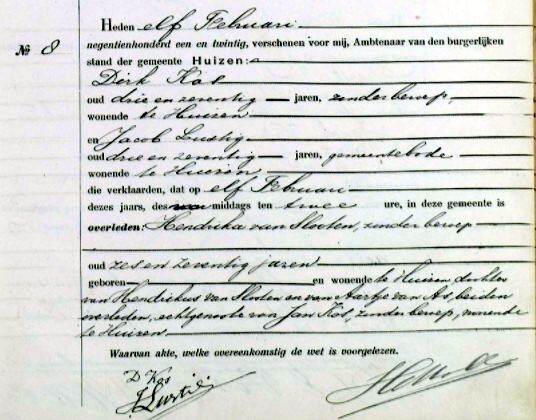 Heden elf Februari
№ 8 negentienhonderd een en twintig, verschenen voor mij, Ambtenaar van den burgerlijken
stand der gemeente Huizen:
Dirk Kos
oud drie en zeventig jaren, zonder beroep,
wonende te Huizen
en Jacob Lustig
oud drie en zeventig jaren, gemeentebode
wonende te Huizen
die verklaarden, dat op elf Februari
dezes jaars, des middags ten twee ure, in deze gemeente is
overleden: Hendrika van Slooten, zonder beroep
oud zes en zeventig jaren
geboren en wonende te Huizen, dochter
van Hendrikus van Slooten en van Aartje van As, beiden
overleden, echtgenoote van Jan Kos, zonder beroep, wonende
te Huizen.
Waarvan akte, welke overeenkomstig de wet is voorgelezen.
D Kos
J Lustig